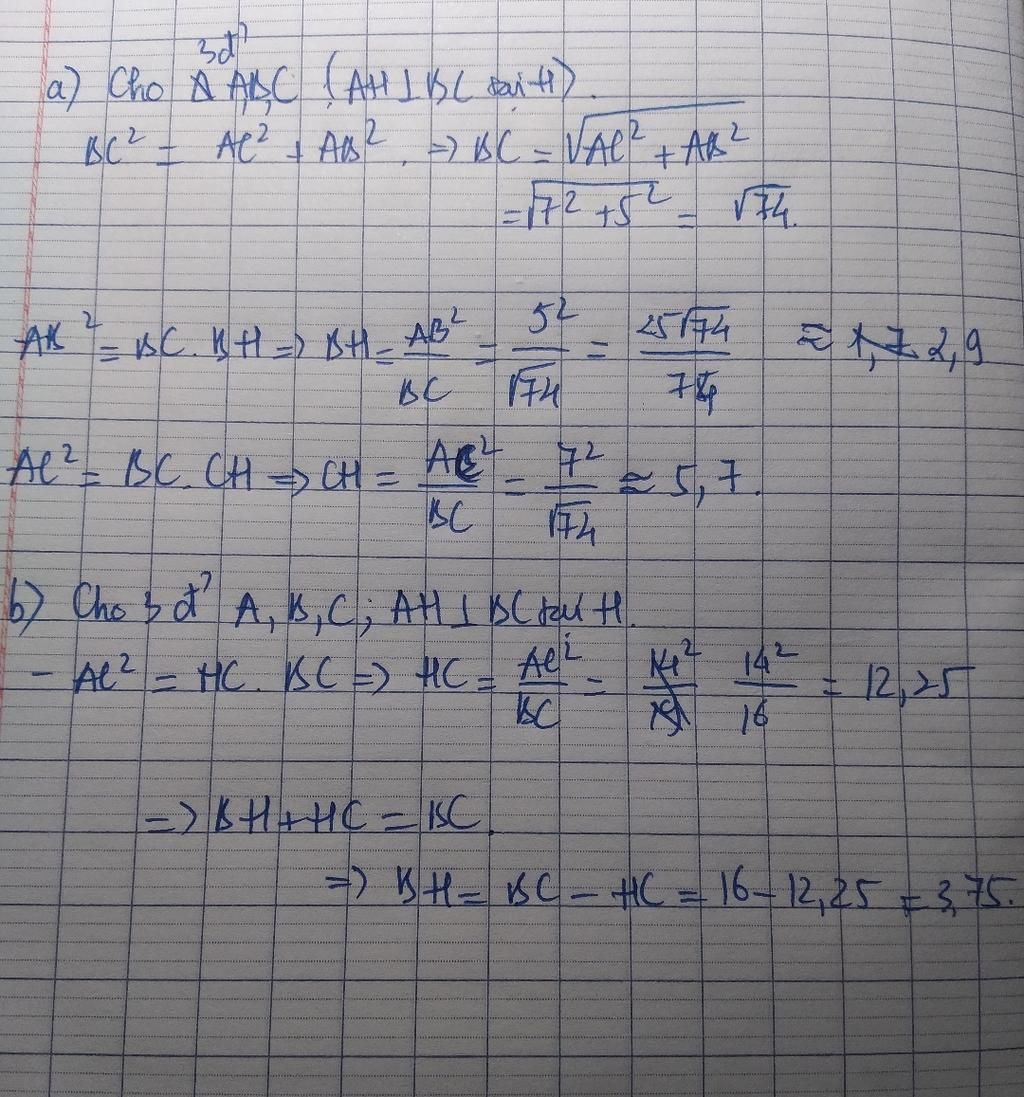 3đ'
a) Cho Δ A,B,C (AH⊥BC tại H).
BC² = AC² + AB². => BC = √AC² + AB²
= √7² + 5² = √74.
AB² = BC. BH => BH = AB²/BC = 5²/√74 = 25√74/74 ≈ 2,9
AC² = BC. CH => CH = AC²/BC = 7²/√74 ≈ 5,7.
b) Cho 3 đ' A, B, C; AH⊥BC tại H.
- AC² = HC. BC => HC = AC²/BC = 14²/16 = 12,25
=> BH + HC = BC.
=> BH = BC - HC = 16 - 12,25 = 3,75.